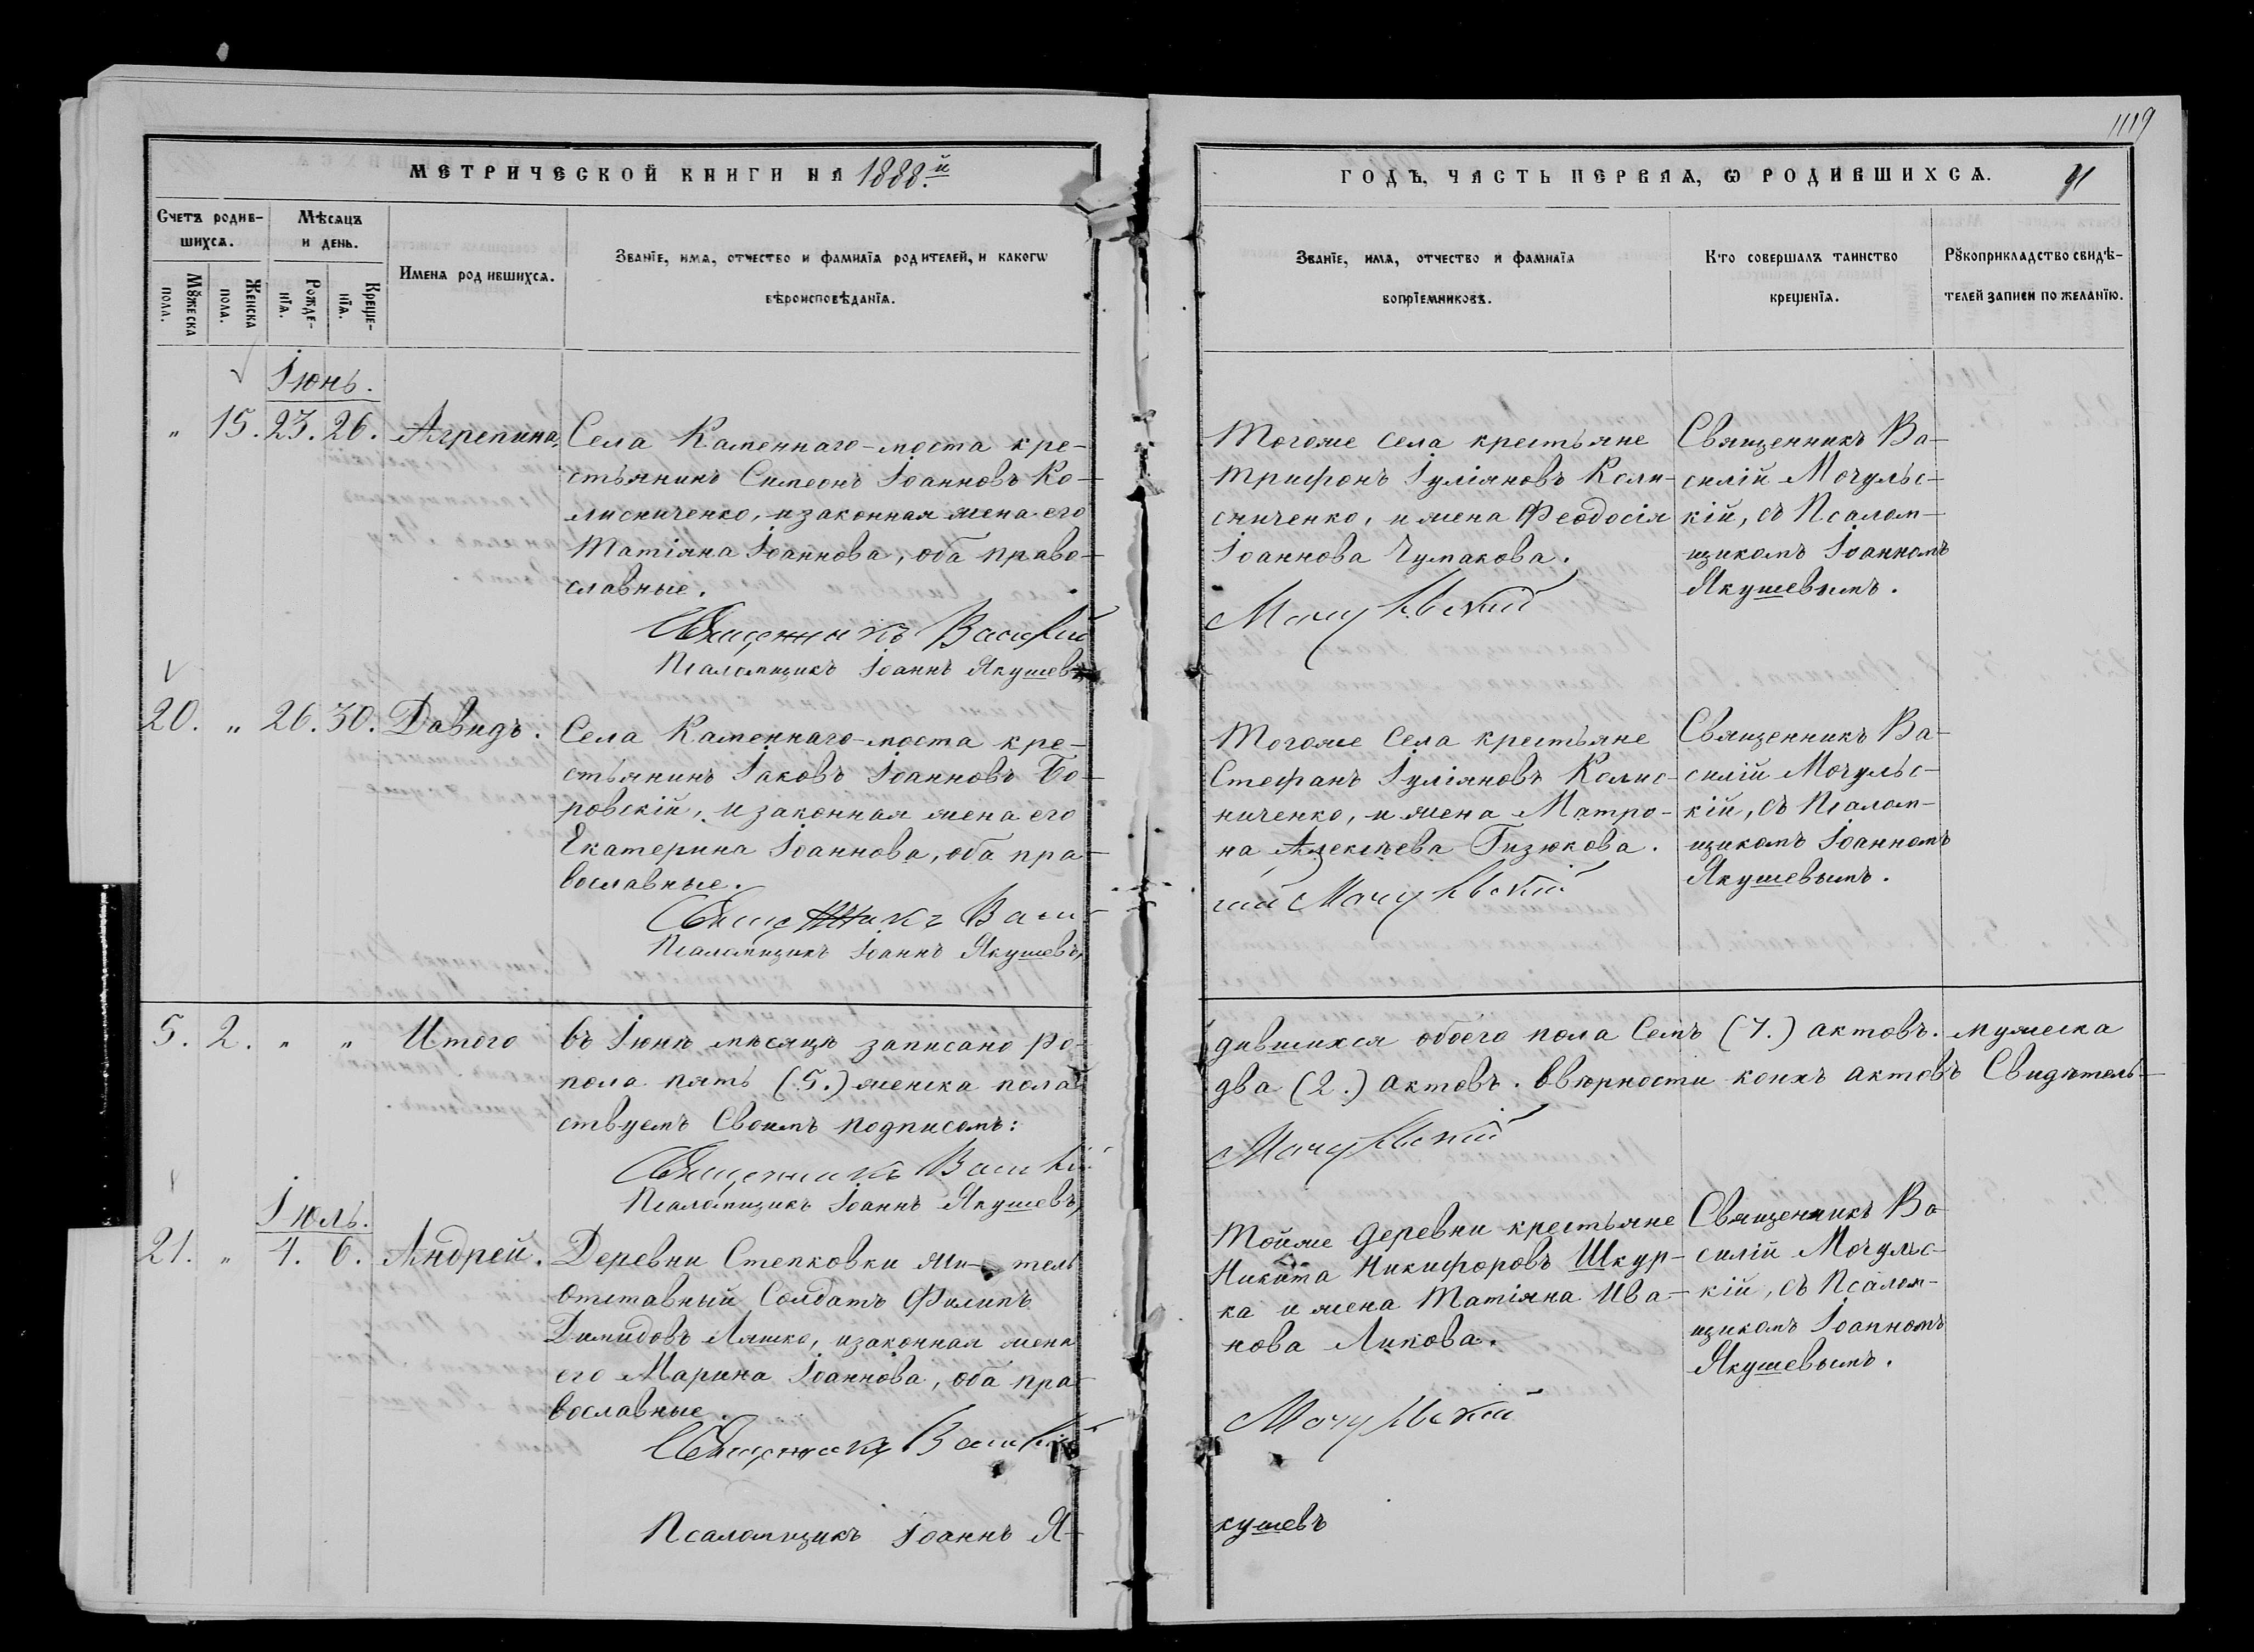 1119
МЕТРИЧЕСКОЙ КНИГИ НА 1888.й
ГОДЪ, ЧАСТЬ ПЕРВАЯ, Ѡ РОДИВШИХСѦ.
91
Счетъ родив-
шихсѧ.
Мѣсяцъ
и день.
Мꙋжеска
пола.
Женска
пола.
Рожде-
нїѧ.
Креще-
нїѧ.
Имена родившихсѧ.
Званїе, имѧ, отчество и фамилїѧ родителей, и какогѡ
вѣроисповѣданїѧ.
Званїе, имѧ, отчество и фамилїѧ
вопрїемниковъ.
Кто совершалъ таинство
крещенїѧ.
Рꙋкоприкладство свидѣ-
телей записи по желанїю.
Іюнь.
" 15. 23. 26. Агрепина,
Села Каменнаго-моста кре-
стьянинъ Симеонъ Іоанновъ Ко-
лисниченко, и законная жена его
Татіяна Іоаннова, оба право-
славные.
Священникъ Василій
Псаломщикъ Іоаннъ Якушевъ,
Тогоже села крестьяне
Трифонъ Іуліяновъ Коли-
сниченко, и жена Феодосія
Іоаннова Чумакова.
Мочульскій
Священникъ Ва-
силій Мочульс-
кій, съ Псалом-
щикомъ Іоанномъ
Якушевымъ.
20. " 26. 30. Давидъ.
Села Каменнаго-моста кре-
стьянинъ Іаковъ Іоанновъ Бо-
ровскій, и законная жена его
Екатерина Іоаннова, оба пра-
вославные.
Священникъ Васи-
Псаломщикъ Іоаннъ Якушевъ,
Тогоже Села крестьяне
Стефанъ Іуліяновъ Колис-
ниченко, и жена Матро-
на Алексѣева Гизюкова.
лій Мочульскій
Священникъ Ва-
силій Мочульс-
кій, съ Псалом-
щикомъ Іоанномъ
Якушевымъ.
5. 2. " " Итого въ Іюнѣ мѣсяцѣ записано ро-
дившихся обоего пола Семъ (7.) актовъ. мужеска
пола пять (5.) женска пола
два (2.) актовъ. Ввѣрности коихъ актовъ Свидѣтель-
ствуемъ Своимъ подписомъ:
Священникъ Василій
Мочульскій
Псаломщикъ Іоаннъ Якушевъ,
Іюль.
21. " 4. 6. Андрей.
Деревни Степковки жи-тель
Отставный Солдатъ Филипъ
Димидовъ Ляшко, и законная жена
его Марина Іоаннова, оба пра-
вославные.
Священникъ Василій
Псаломщикъ Іоаннъ Я-
Тойже Деревни крестьяне
Никита Никифоровъ Шкур-
ка и жена Татіяна Ива-
нова Липова.
Мочульскій
кушевъ
Священникъ Ва-
силій Мочульс-
кій, съ Псалом-
щикомъ Іоанномъ
Якушевымъ.